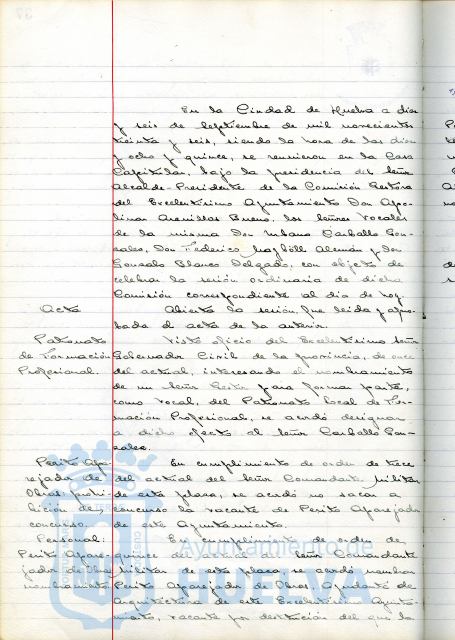 En la Ciudad de Huelva a diez
y seis de Septiembre de mil novecientos
treinta y seis, siendo la hora de las diez
y ocho y quince, se reunieron en la Casa
Capitular, bajo la presidencia del Señor
Alcalde-Presidente de la Comisión Gestora
del Excelentísimo Ayuntamiento Don Apo-
linar Arenillas Bueno, los Señores Vocales
de la misma Don Urbano Carballo Gon-
zales, Don Federico Alemán y Don
Gonzalo Blanco Delgado, con objeto de
celebrar la sesión ordinaria de dicha
Comisión correspondiente al día de hoy.
Acta
Abierta la sesión, fue leída y apro-
bada el acta de la anterior.
Patronato
de Formación
Profesional.
Visto oficio del Excelentísimo Señor
Gobernador Civil de la provincia, de once
del actual, interesando el nombramiento
de un Señor Gestor para formar parte,
como vocal, del Patronato Local de For-
mación Profesional, se acordó designar
a dicho efecto al Señor Carballo Gon-
zales.
Perito Apa-
rejador de
Obras, prohi-
bición de
concurso.
En cumplimiento de orden de trece
del actual del Señor Comandante Militar
de esta plaza, se acordó no sacar a
concurso la vacante de Perito Aparejador
de este Ayuntamiento.
Personal:
Perito Apare-
jador de Obras
nombramiento
En cumplimiento de orden de
quince del Señor Comandante
Militar de esta plaza se acordó nombrar
Perito Aparejador de Obras, Ayudante de
Arquitectura de este Excelentísimo Ayunta-
miento, vacante por destitución del que la
Ayuntamiento
HUELVA